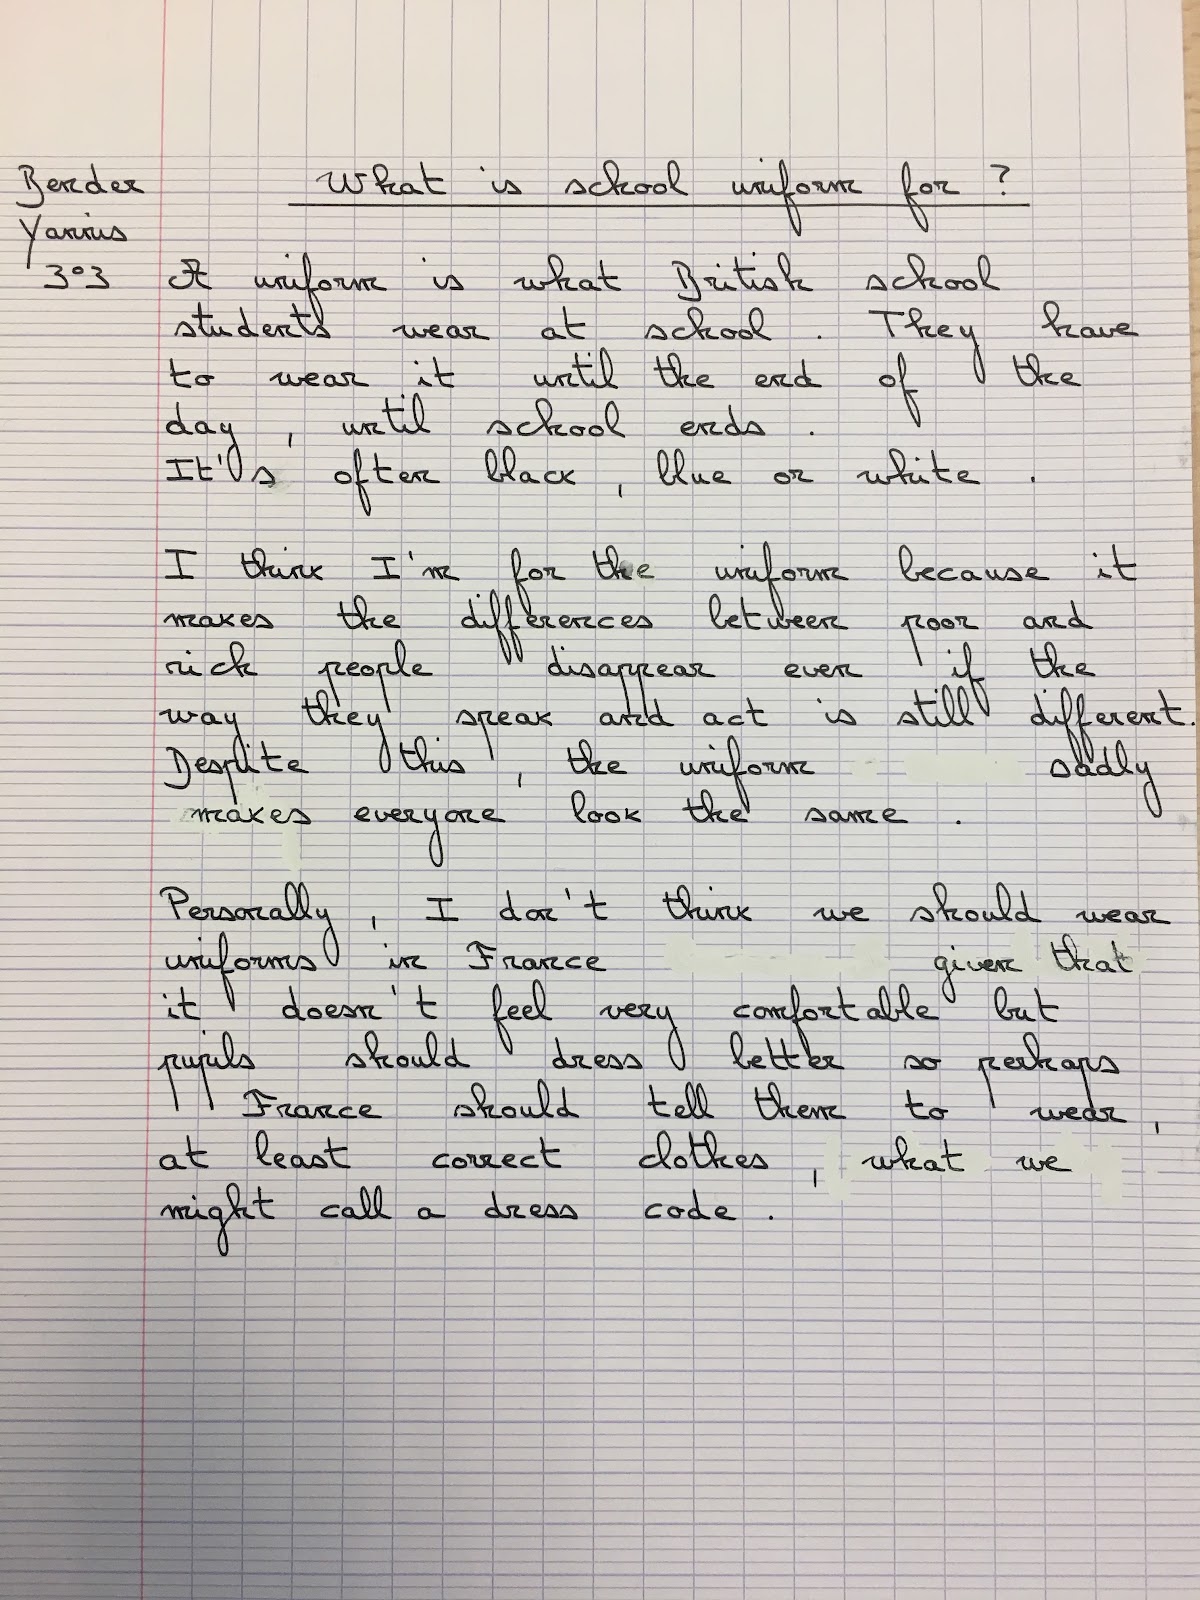 Bender
Yannis
303
What is school uniform for ?
A uniform is what British school
students wear at school . They have
to wear it until the end of the
day , until school ends .
It's often black , blue or white .
I think I'm for the uniform because it
makes the differences between poor and
rich people disappear even if the
way they speak and act is still different.
Despite this , the uniform sadly
makes everyone look the same .
Personally , I don't think we should wear
uniforms in France given that
it doesn't feel very comfortable but
pupils should dress better so perhaps
France should tell them to wear ,
at least correct clothes , what we
might call a dress code .